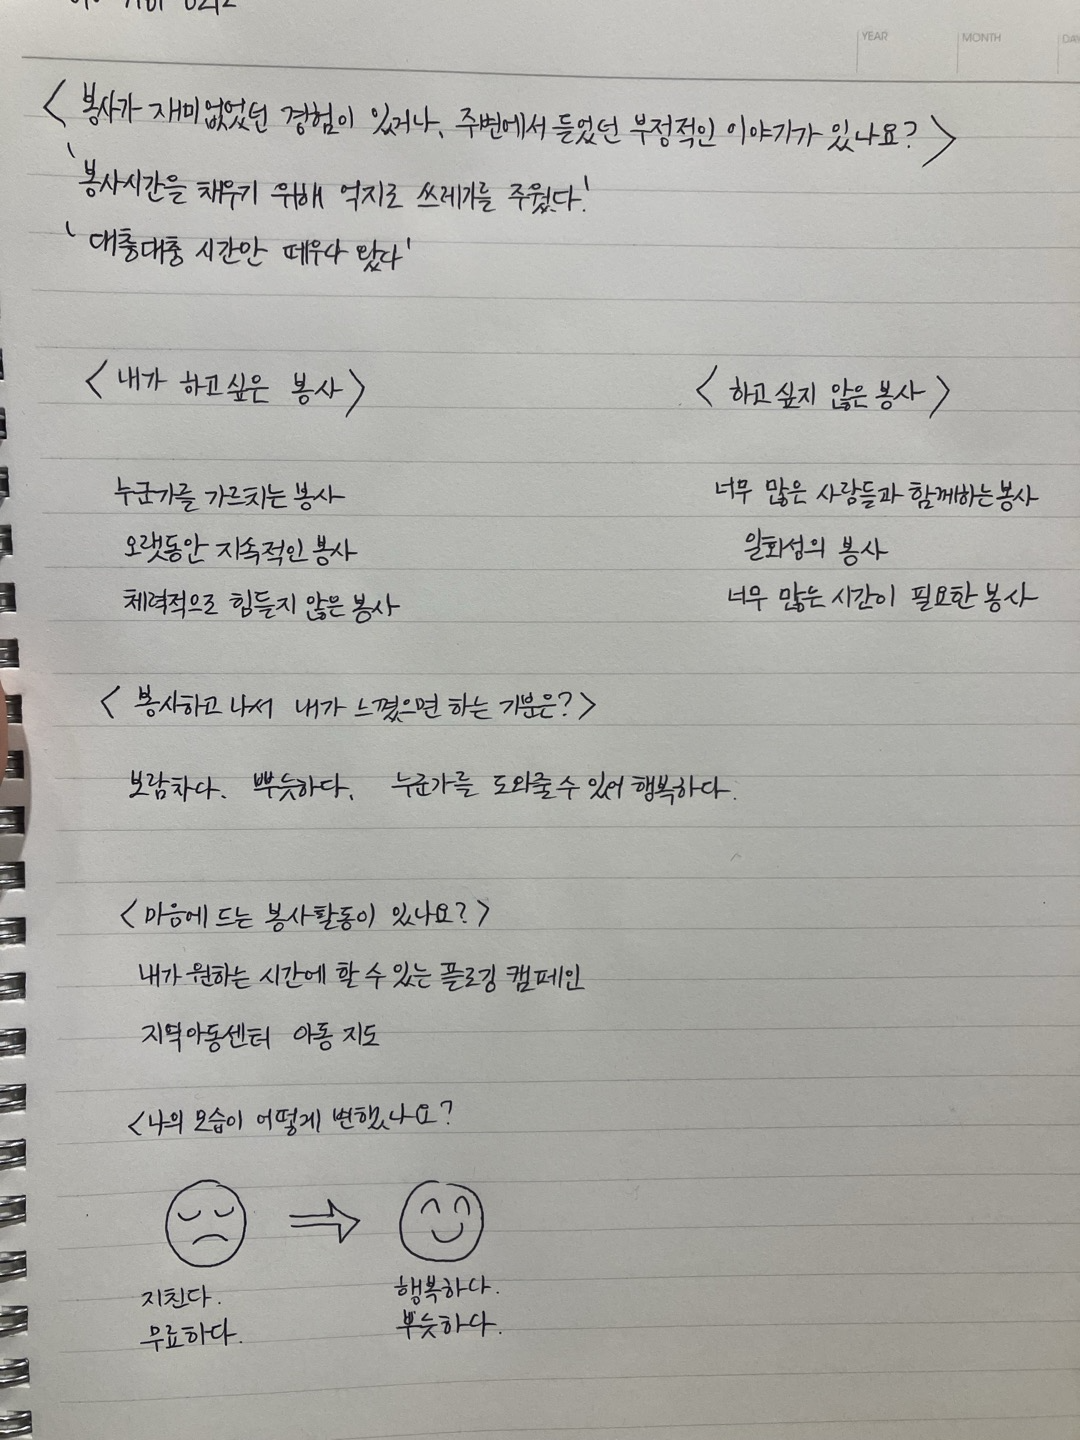 YEAR MONTH
< 봉사가 재미없었던 경험이 있거나, 주변에서 들었던 부정적인 이야기가 있나요? >
'봉사시간을 채우기 위해 억지로 쓰레기를 주웠다.'
'대충대충 시간만 떼우다 왔다'
< 내가 하고싶은 봉사 > < 하고싶지 않은 봉사 >
누군가를 가르치는 봉사 너무 많은 사람들과 함께하는 봉사
오랫동안 지속적인 봉사 일회성의 봉사
체력적으로 힘들지 않은 봉사 너무 많은 시간이 필요한 봉사
< 봉사하고 나서 내가 느꼈으면 하는 기분은? >
보람차다. 뿌듯하다. 누군가를 도와줄 수 있어 행복하다.
< 마음에 드는 봉사활동이 있나요? >
내가 원하는 시간에 할 수 있는 플로깅 캠페인
지역아동센터 아동 지도
< 나의 모습이 어떻게 변했나요?
지친다. 행복하다.
무료하다. 뿌듯하다.